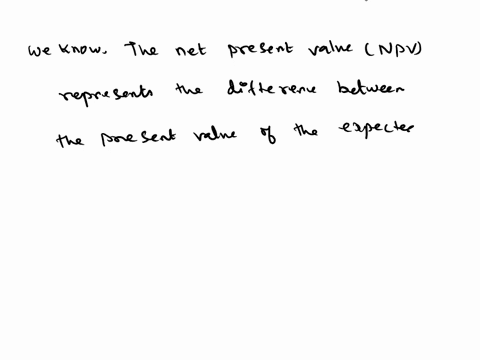 We know. The net present value (NPV)
represents the difference between
the present value of the expected